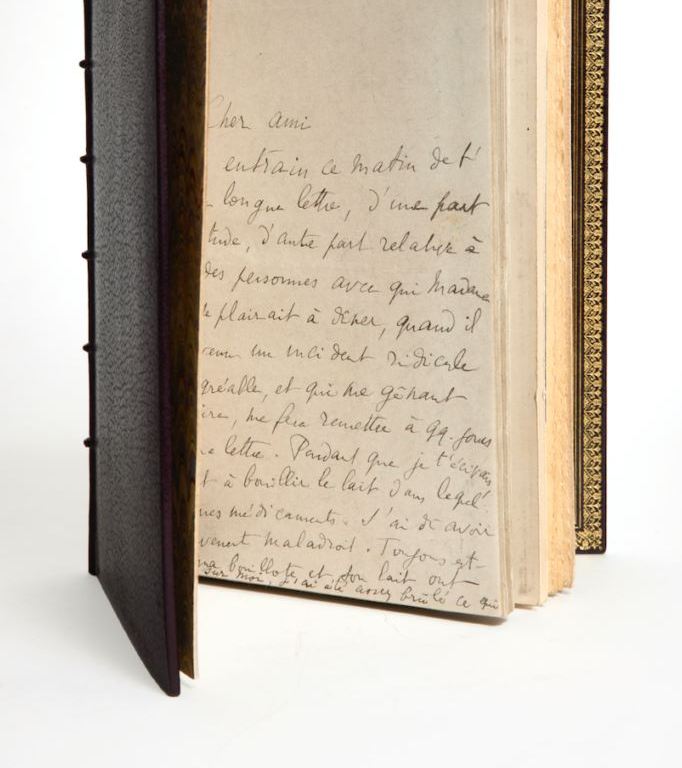 Cher ami
entrain ce matin de t'
longue lettre, d'une part
tude, d'autre part relative à
des personnes avec qui Madame
plairait à dîner, quand il
venu un incident ridicule
gréable, et qui me gênant
ire, me fera remettre à qq. jours
lettre. Pendant que je t'écrivais
t à bouillir le lait dans lequel
mes médicaments. J'ai dû avoir
vement maladroit. Toujours est-
ma bouillote et son lait ont
sur moi, j'ai été assez brûlé ce qui